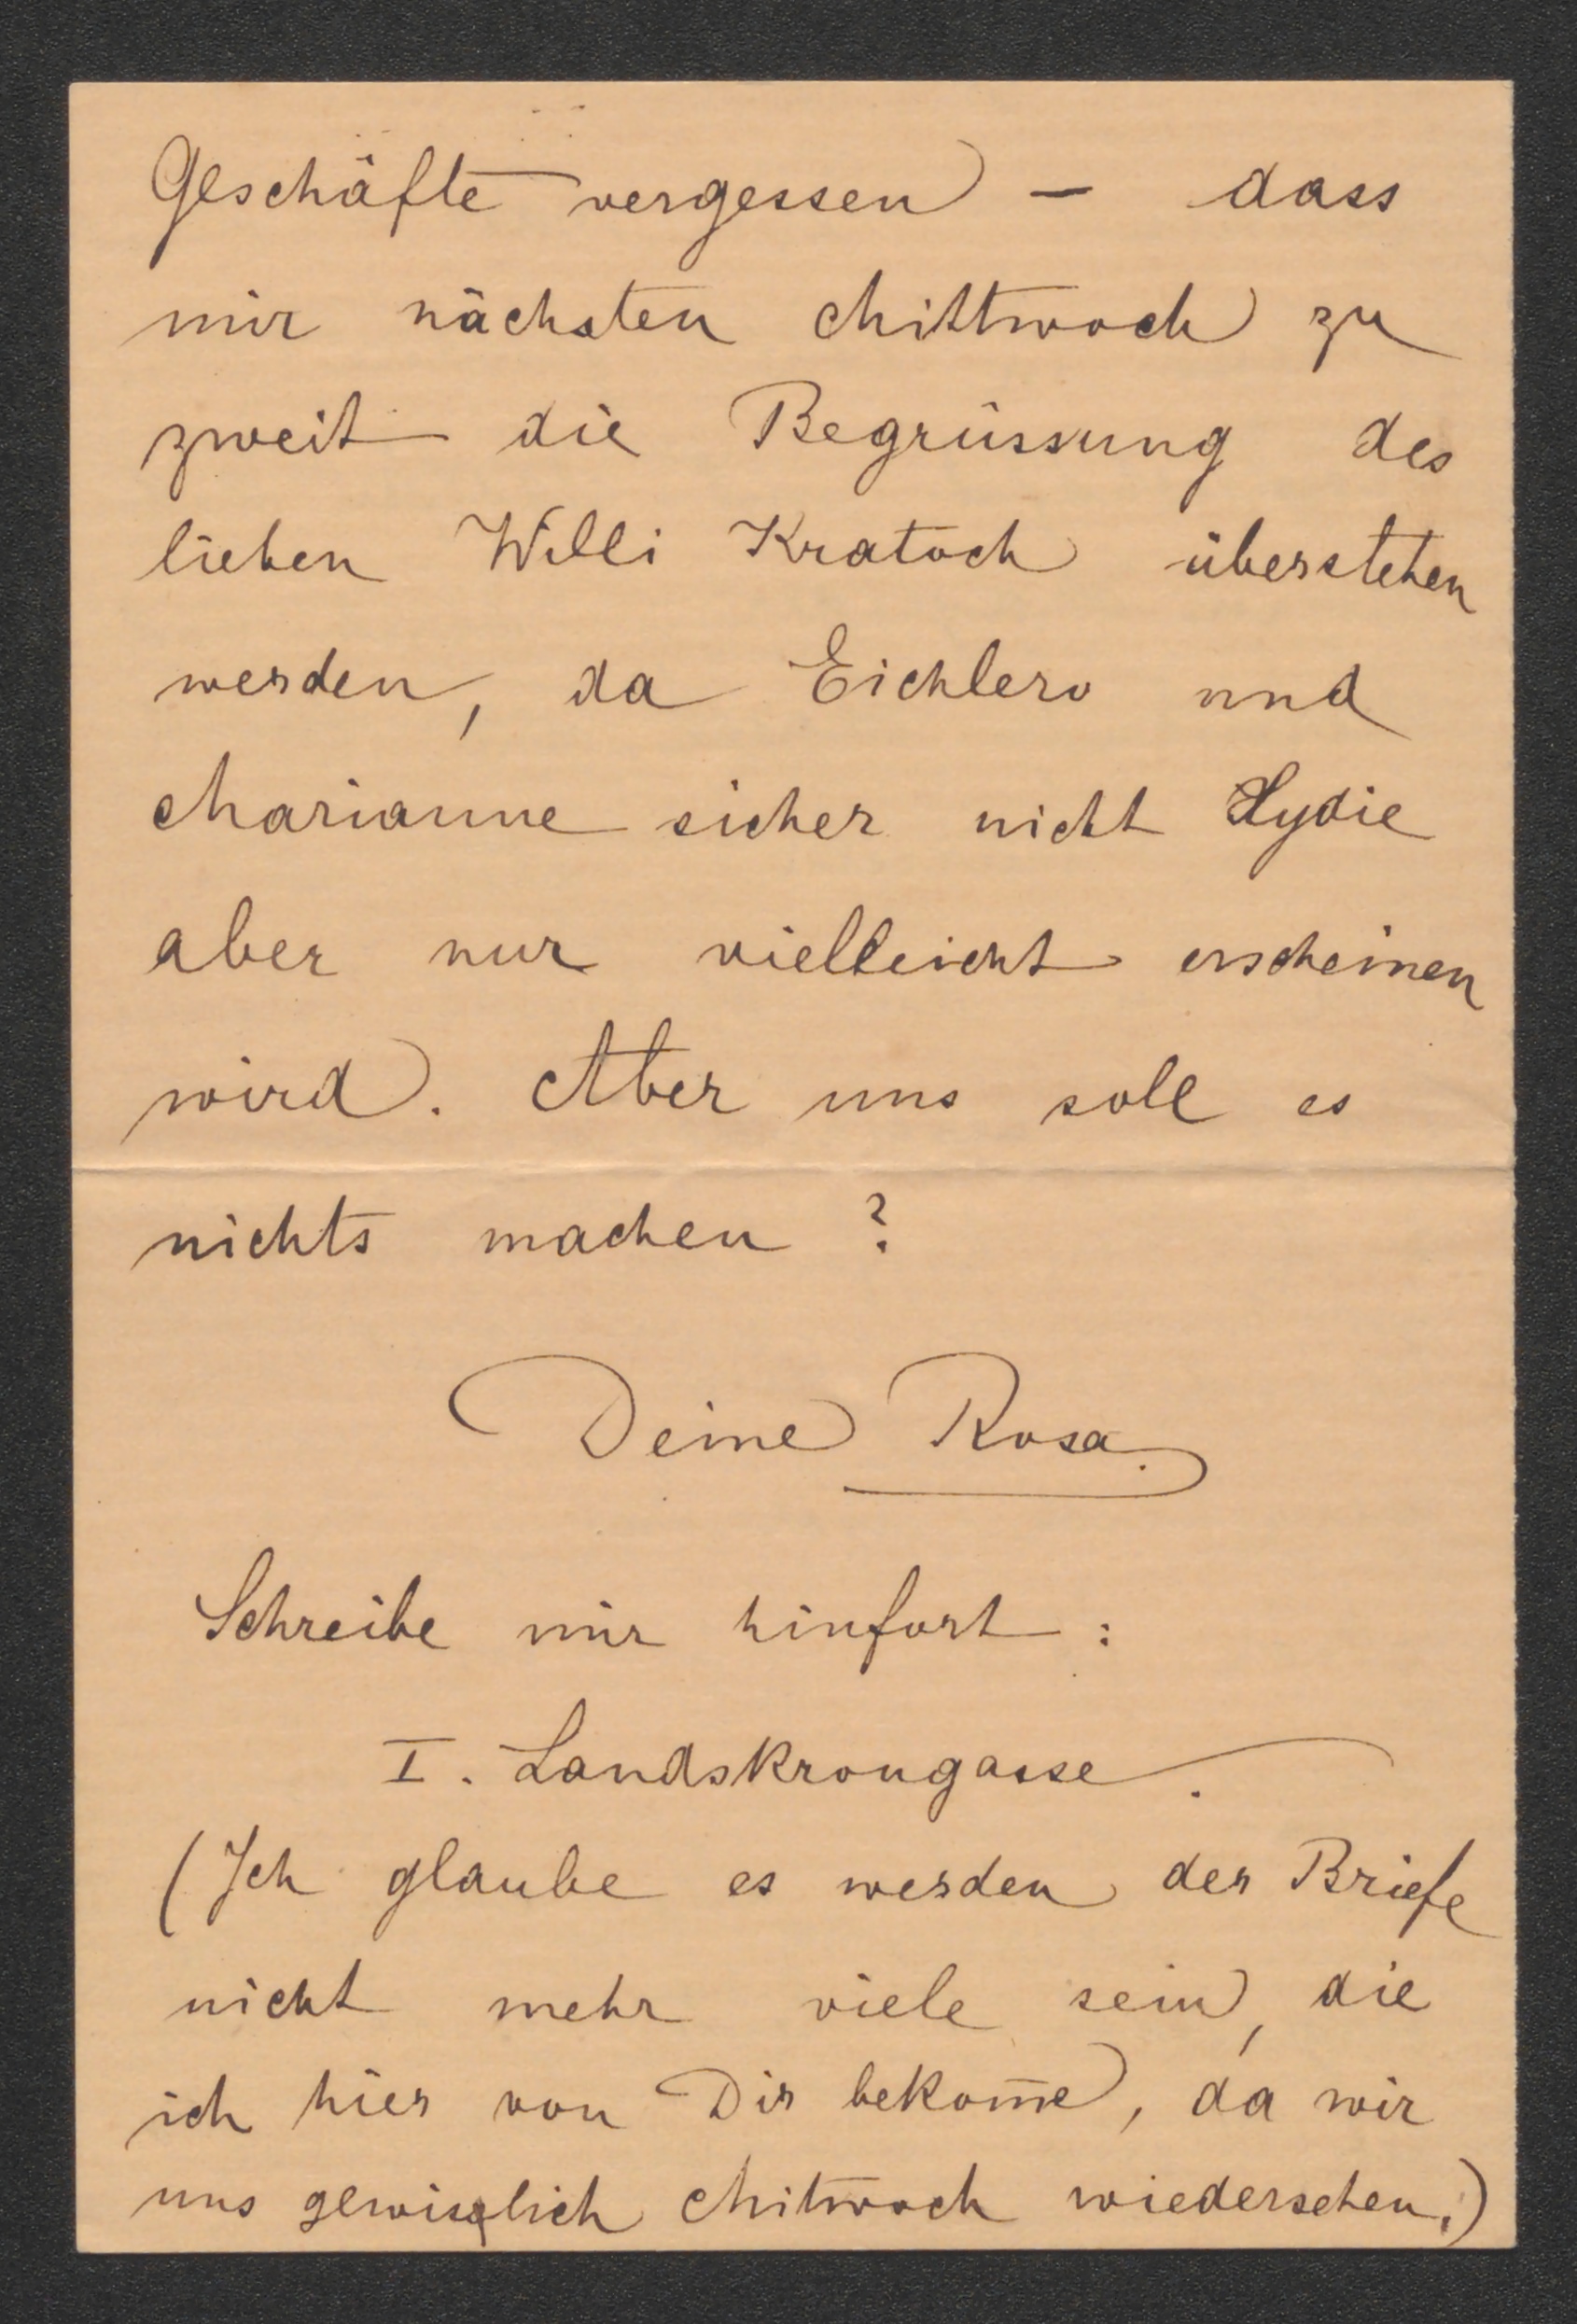 Geschäfte vergessen – dass
wir nächsten Mittwoch zu
zweit die Begrüssung des
lieben Willi Kratoch überstehen
werden, da Eichlers und
Marianne sicher nicht Lydie
aber nur vielleicht erscheinen
wird. Aber uns soll es
nichts machen?
Deine Rosa.
Schreibe mir hinfort:
I. Landskrongasse.
(Ich glaube es werden der Briefe
nicht mehr viele sein, die
ich hier von Dir bekom̅e, da wir
uns gewisslich Mittwoch wiedersehen.)